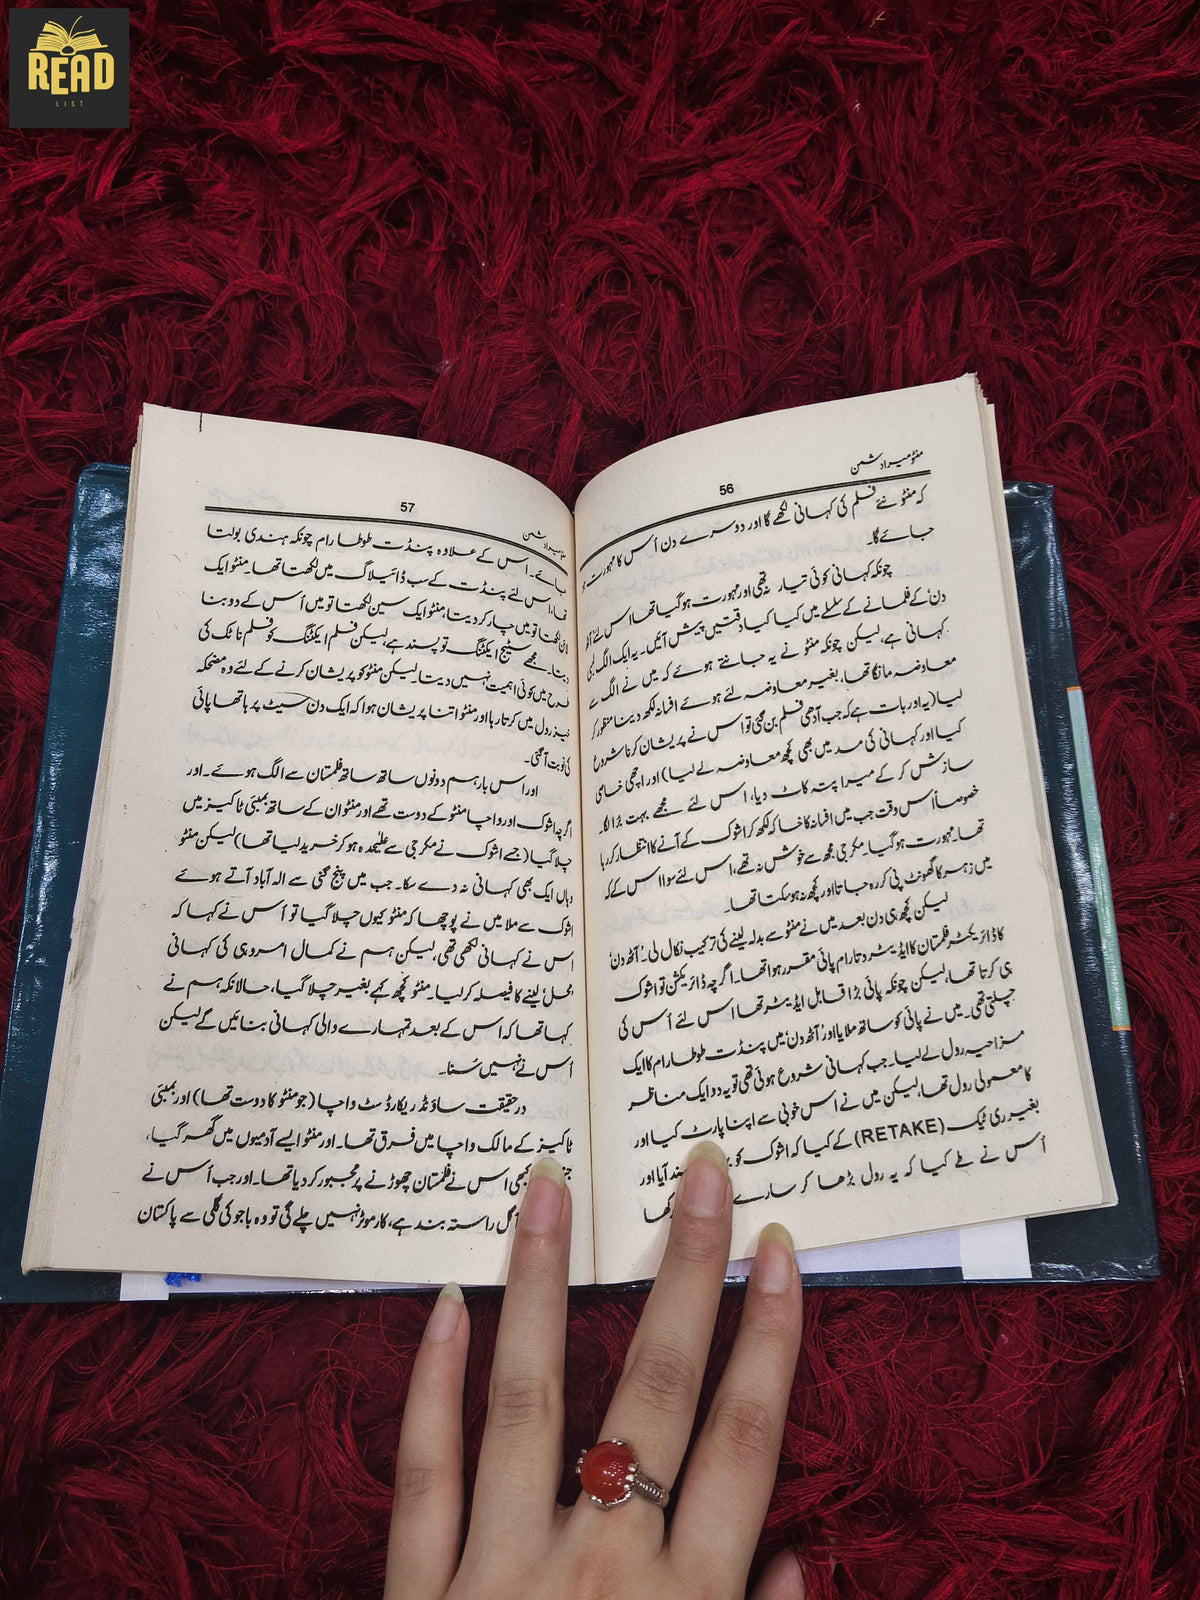 READ
LIST
منٹو میرا دشمن
56
کہ منٹو نئے فلم کی کہانی لکھے گا اور دوسرے دن اُس کا مہورت
جائے گا۔
چونکہ کہانی کوئی تیار نہ تھی اور مہورت ہو گیا تھا اس لئے
دن کے فلمانے کے سلسلے میں کیا کیا دقتیں پیش آئیں۔ یہ ایک الگ
کہانی ہے، لیکن چونکہ منٹو نے یہ جانتے ہوئے کہ میں نے الگ سے
معاوضہ مانگا تھا، بغیر معاوضہ لئے ہوئے افسانہ لکھ دینا منظور کر
لیا (یہ اور بات ہے کہ جب آدھی فلم بن گئی تو اس نے پریشان کرنا شروع
کیا اور کہانی کی مد میں بھی کچھ معاوضہ لے لیا) اور اچھی خاصی
سازش کر کے میرا پتہ کاٹ دیا، اس لئے مجھے بہت بُرا لگا۔
خصوصاً اُس وقت جب میں افسانہ کا خاکہ لکھ کر اشوک کے آنے کا انتظار کر رہا
تھا۔ مہورت ہو گیا۔ مکرجی مجھ سے خوش نہ تھے، اس لئے سوا اس کے کہ
میں زہر کا گھونٹ پی کر رہ جاتا اور کچھ نہ ہو سکتا تھا۔
لیکن کچھ ہی دن بعد میں نے منٹو سے بدلہ لینے کی ترکیب نکال لی۔ 'آٹھ دن'
کا ڈائریکٹر فلمستان کا ایڈیٹر دتا رام پائی مقرر ہوا تھا۔ اگرچہ ڈائریکشن تو اشوک
ہی کرتا تھا، لیکن چونکہ پائی بڑا قابل ایڈیٹر تھا اس لئے اُس کی
چلتی تھی۔ میں نے پائی کو ساتھ ملایا اور 'آٹھ دن' میں پنڈت طوطا رام کا ایک
مزاحیہ رول لے لیا۔ جب کہانی شروع ہوئی تھی تو یہ دو ایک مناظر
کا معمولی رول تھا، لیکن میں نے اس خوبی سے اپنا پارٹ کیا اور
بغیر ری ٹیک (RETAKE) کے کیا کہ اشوک کو آیا اور
اُس نے طے کیا کہ یہ رول بڑھا کر سارے
منٹو میرا دشمن
57
جائے۔ اس کے علاوہ پنڈت طوطا رام چونکہ ہندی بولتا
تھا، اس لئے پنڈت کے سب ڈائیلاگ میں لکھتا تھا۔ منٹو ایک
لکھتا تو میں چار کر دیتا، منٹو ایک سین لکھتا تو میں اُس کے دو بنا
دیتا۔ مجھے سٹیج ایکٹنگ تو پسند ہے، لیکن فلم ایکٹنگ کو فلم ناٹک کی
طرح میں کوئی اہمیت نہیں دیتا۔ لیکن منٹو کو پریشان کرنے کے لئے وہ مضحکہ
خیز رول میں کرتا رہا اور منٹو اتنا پریشان ہوا کہ ایک دن سیٹ پر ہاتھا پائی
کی نوبت آ گئی۔
اور اس بار ہم دونوں ساتھ ساتھ فلمستان سے الگ ہوئے۔ اور
اگرچہ اشوک اور واچا منٹو کے دوست تھے اور منٹو ان کے ساتھ بمبئی ٹاکیز میں
چلا گیا (جسے اشوک نے مکرجی سے علیٰحدہ ہو کر خرید لیا تھا) لیکن منٹو
وہاں ایک بھی کہانی نہ دے سکا۔ جب میں پنچ گنی سے الہ آباد آتے ہوئے
اشوک سے ملا میں نے پوچھا کہ منٹو کیوں چلا گیا تو اُس نے کہا کہ
اس نے کہانی لکھی تھی، لیکن ہم نے کمال امروہی کی کہانی
'محل' لینے کا فیصلہ کر لیا۔ منٹو کچھ کہے بغیر چلا گیا، حالانکہ ہم نے
کہا تھا کہ اس کے بعد تمہارے والی کہانی بنائیں گے لیکن
اُس نے نہیں سُنا۔
درحقیقت ساؤنڈ ریکارڈسٹ واچا (جو منٹو کا دوست تھا) اور بمبئی
ٹاکیز کے مالک واچا میں فرق تھا۔ اور منٹو ایسے آدمیوں میں گھر گیا،
کبھی اس نے فلمستان چھوڑنے پر مجبور کر دیا تھا۔ اور جب اُس نے
راستہ بند ہے، کار موٹر نہیں چلے گی تو وہ باجو کی گلی سے پاکستان